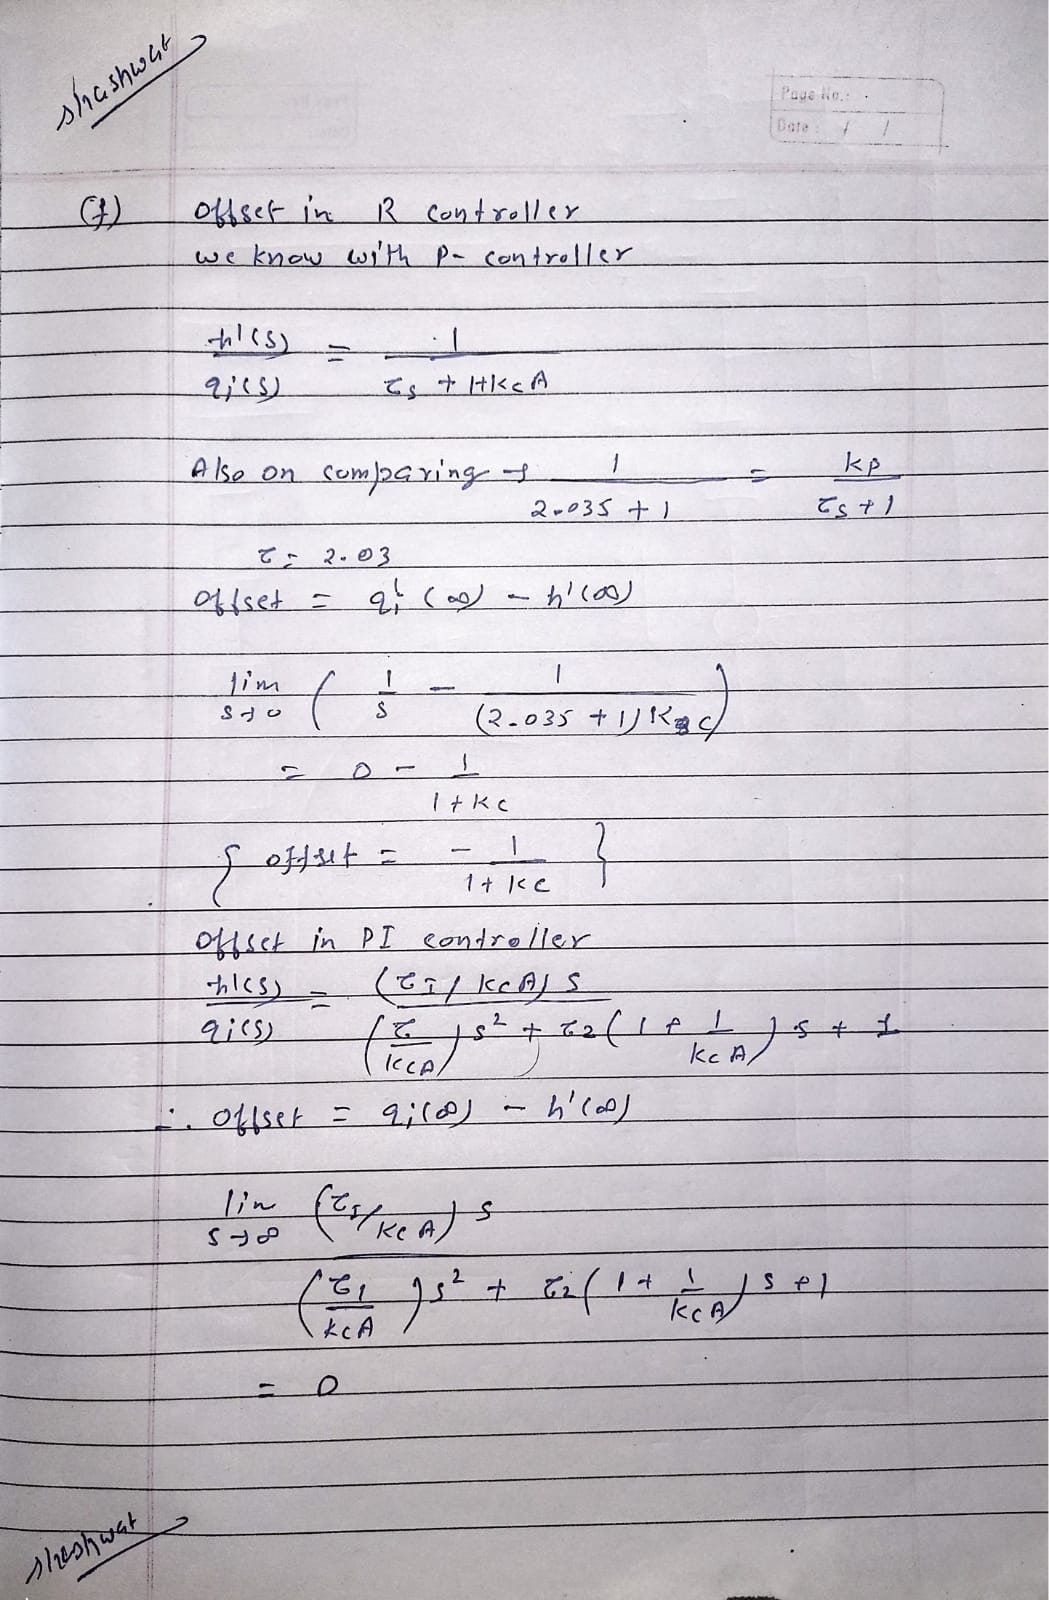 shashwat
Page No.:
Date: / /
(f) offset in P controller
we know with P- controller
h'(s) / qi(s) = 1 / τs + 1+kcA
Also on comparing 1 / 2.03s + 1 = kp / τs + 1
τ = 2.03
offset = qi'(∞) - h'(∞)
lim s→0 ( 1/s - 1 / (2.03s + 1) Kc )
= 0 - 1 / 1 + kc
{ offset = - 1 / 1 + kc }
offset in PI controller
h'(s) / qi(s) = (τI / kcA) s / (τ / kcA) s² + τ2 (1 + 1 / kcA) s + 1
∴ offset = qi(∞) - h'(∞)
lim s→∞ (τI / kcA) s
(τ1 / kcA) s² + τ2 (1 + 1 / kcA) s + 1
= 0
shashwat